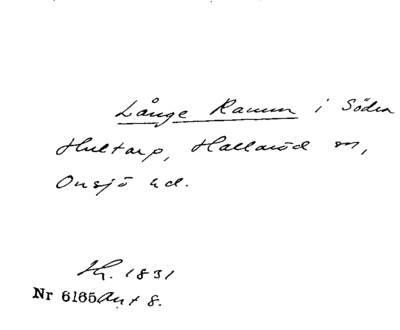 Långe Ramm i Södra
Hultarp, Hallaröd sn,
Onsjö hd.
Hg. 1831
Nr 6165 Ant 8.